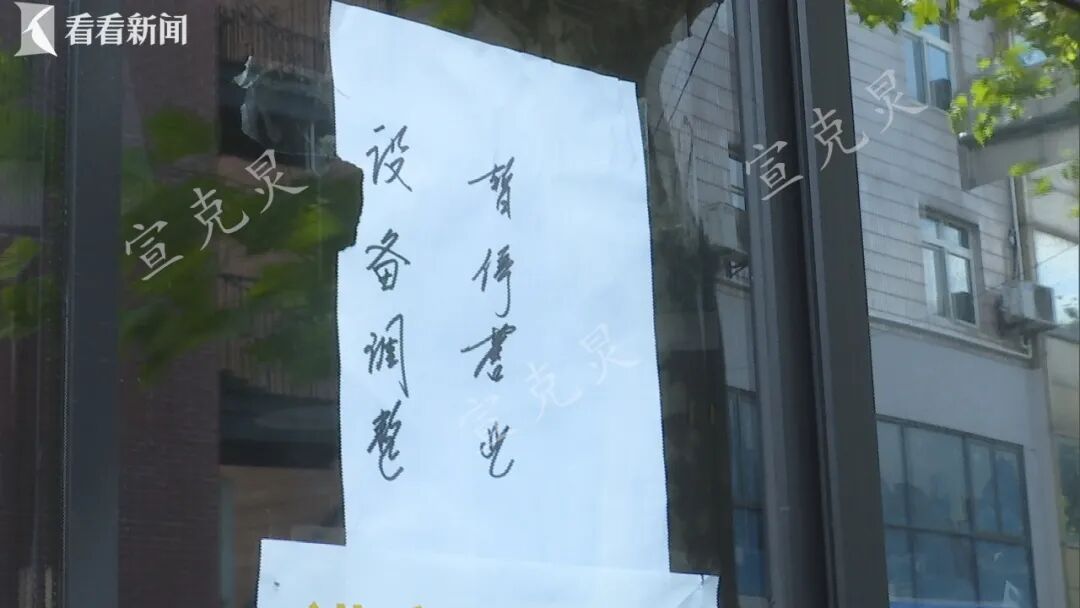 看看新闻
设备调整
暂停营业
宣克炅
宣克炅
宣克炅